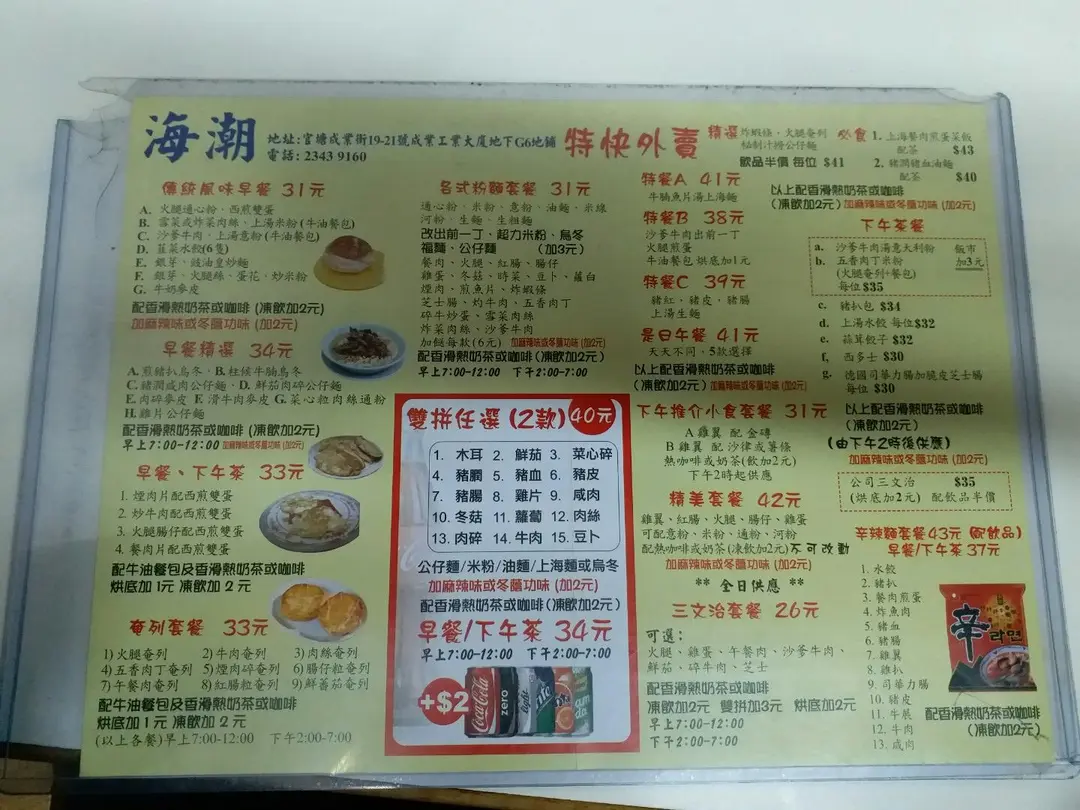 海潮
地址: 官塘成業街19-21號成業工業大廈地下G6地舖
電話: 2343 9160
特快外賣
傳統風味早餐 31元
A. 火腿通心粉、西煎雙蛋
B. 雪菜或炸菜肉絲、上湯米粉 (牛油餐包)
C. 沙爹牛肉、上湯意粉 (牛油餐包)
D. 韮菜水餃(6隻)
E. 銀芽、豉油皇炒麵
F. 銀芽、火腿絲、蛋花、炒米粉
G. 牛奶麥皮
配香滑熱奶茶或咖啡 (凍飲加2元)
加麻辣味或冬蔭功味 (加2元)
早餐精選 34元
A. 煎豬扒烏冬、B. 柱候牛腩烏冬
C. 豬潤咸肉公仔麵、D. 鮮茄肉碎公仔麵
E. 肉碎麥皮 F. 滑牛肉麥皮 G. 菜心粒肉絲通粉
H. 雞片公仔麵
配香滑熱奶茶或咖啡 (凍飲加2元)
早上7:00-12:00 加麻辣味或冬蔭功味 (加2元)
早餐、下午茶 33元
1. 煙肉片配西煎雙蛋
2. 炒牛肉配西煎雙蛋
3. 火腿腸仔配西煎雙蛋
4. 餐肉片配西煎雙蛋
配牛油餐包及香滑熱奶茶或咖啡
烘底加 1元 凍飲加 2 元
奄列套餐 33元
1) 火腿奄列 2) 牛肉奄列 3) 肉絲奄列
4) 五香肉丁奄列 5) 煙肉碎奄列 6) 腸仔粒奄列
7) 午餐肉奄列 8) 紅腸粒奄列 9) 鮮蕃茄奄列
配牛油餐包及香滑熱奶茶或咖啡
烘底加 1 元 凍飲加 2 元
(以上各餐) 早上7:00-12:00 下午2:00-7:00
各式粉麵套餐 31元
通心粉、米粉、意粉、油麵、米線
河粉、生麵、生粗麵
改出前一丁、超力米粉、烏冬
福麵、公仔麵 (加3元)
餐肉、火腿、紅腸、腸仔
雞蛋、冬菇、時菜、豆卜、蘿白
煙肉、煎魚片、炸蝦條
芝士腸、灼牛肉、五香肉丁
碎牛炒蛋、雪菜肉絲
炸菜肉絲、沙爹牛肉
加餸每款 (6元) 加麻辣味或冬蔭功味 (加2元)
配香滑熱奶茶或咖啡 (凍飲加2元)
早上7:00-12:00 下午2:00-7:00
雙拼任選 (2款) 40元
1. 木耳 2. 鮮茄 3. 菜心碎
4. 豬膶 5. 豬血 6. 豬皮
7. 豬腸 8. 雞片 9. 咸肉
10. 冬菇 11. 蘿蔔 12. 肉絲
13. 肉碎 14. 牛肉 15. 豆卜
公仔麵/米粉/油麵/上海麵或烏冬
加麻辣味或冬蔭功味 (加2元)
配香滑熱奶茶或咖啡 (凍飲加2元)
早餐/下午茶 34元
早上7:00-12:00 下午2:00-7:00
+$2
Coca-Cola
zero
light
精選 炸蝦條、火腿奄列
秘制汁撈公仔麵
飲品半價 每位 $41
必食 1. 上海餐肉煎蛋菜飯
配茶 $43
2. 豬潤豬血油麵
配茶 $40
特餐A 41元
牛腩魚片湯上海麵
特餐B 38元
沙爹牛肉出前一丁
火腿煎蛋
牛油餐包 烘底加1元
特餐C 39元
豬紅、豬皮、豬腸
上湯生麵
是日午餐 41元
天天不同, 5款選擇
以上配香滑熱奶茶或咖啡
(凍飲加2元) 加麻辣味或冬蔭功味 (加2元)
下午推介小食套餐 31元
A 雞翼 配 金磚
B 雞翼 配 沙律或薯條
熱咖啡或奶茶(飲加2元)
下午2時起供應
精美套餐 42元
雞翼、紅腸、火腿、腸仔、雞蛋
可配意粉、米粉、通粉、河粉
配熱咖啡或奶茶(凍飲加2元) 不可改動
加麻辣味或冬蔭功味 (加2元)
** 全日供應 **
三文治套餐 26元
可選:
火腿、雞蛋、午餐肉、沙爹牛肉、
鮮茄、碎牛肉、芝士
配香滑熱奶茶或咖啡
凍飲加2元 雙拼加3元 烘底加2元
早上7:00-12:00
下午2:00-7:00
以上配香滑熱奶茶或咖啡
(凍飲加2元) 加麻辣味或冬蔭功味 (加2元)
下午茶餐
a. 沙爹牛肉湯意大利粉 飯市
b. 五香肉丁米粉 加3元
(火腿奄列+餐包)
每位$35
c. 豬扒包 $34
d. 上湯水餃 每位$32
e. 蒜茸餃子 $32
f. 西多士 $30
g. 德國司華力腸加脆皮芝士腸
每位 $30
以上配香滑熱奶茶或咖啡
(凍飲加2元)
(由下午2時後供應)
加麻辣味或冬蔭功味 (加2元)
公司三文治 $35
(烘底加2元) 配飲品半價
辛辣麵套餐43元 (配飲品)
早餐/下午茶 37元
1. 水餃
2. 豬扒
3. 餐肉煎蛋
4. 炸魚肉
5. 豬血
6. 豬腸
7. 雞翼
8. 雞扒
9. 司華力腸
10. 豬皮
11. 牛展
12. 牛肉
13. 咸肉
辛
라면
配香滑熱奶茶或咖啡
(凍飲加2元)